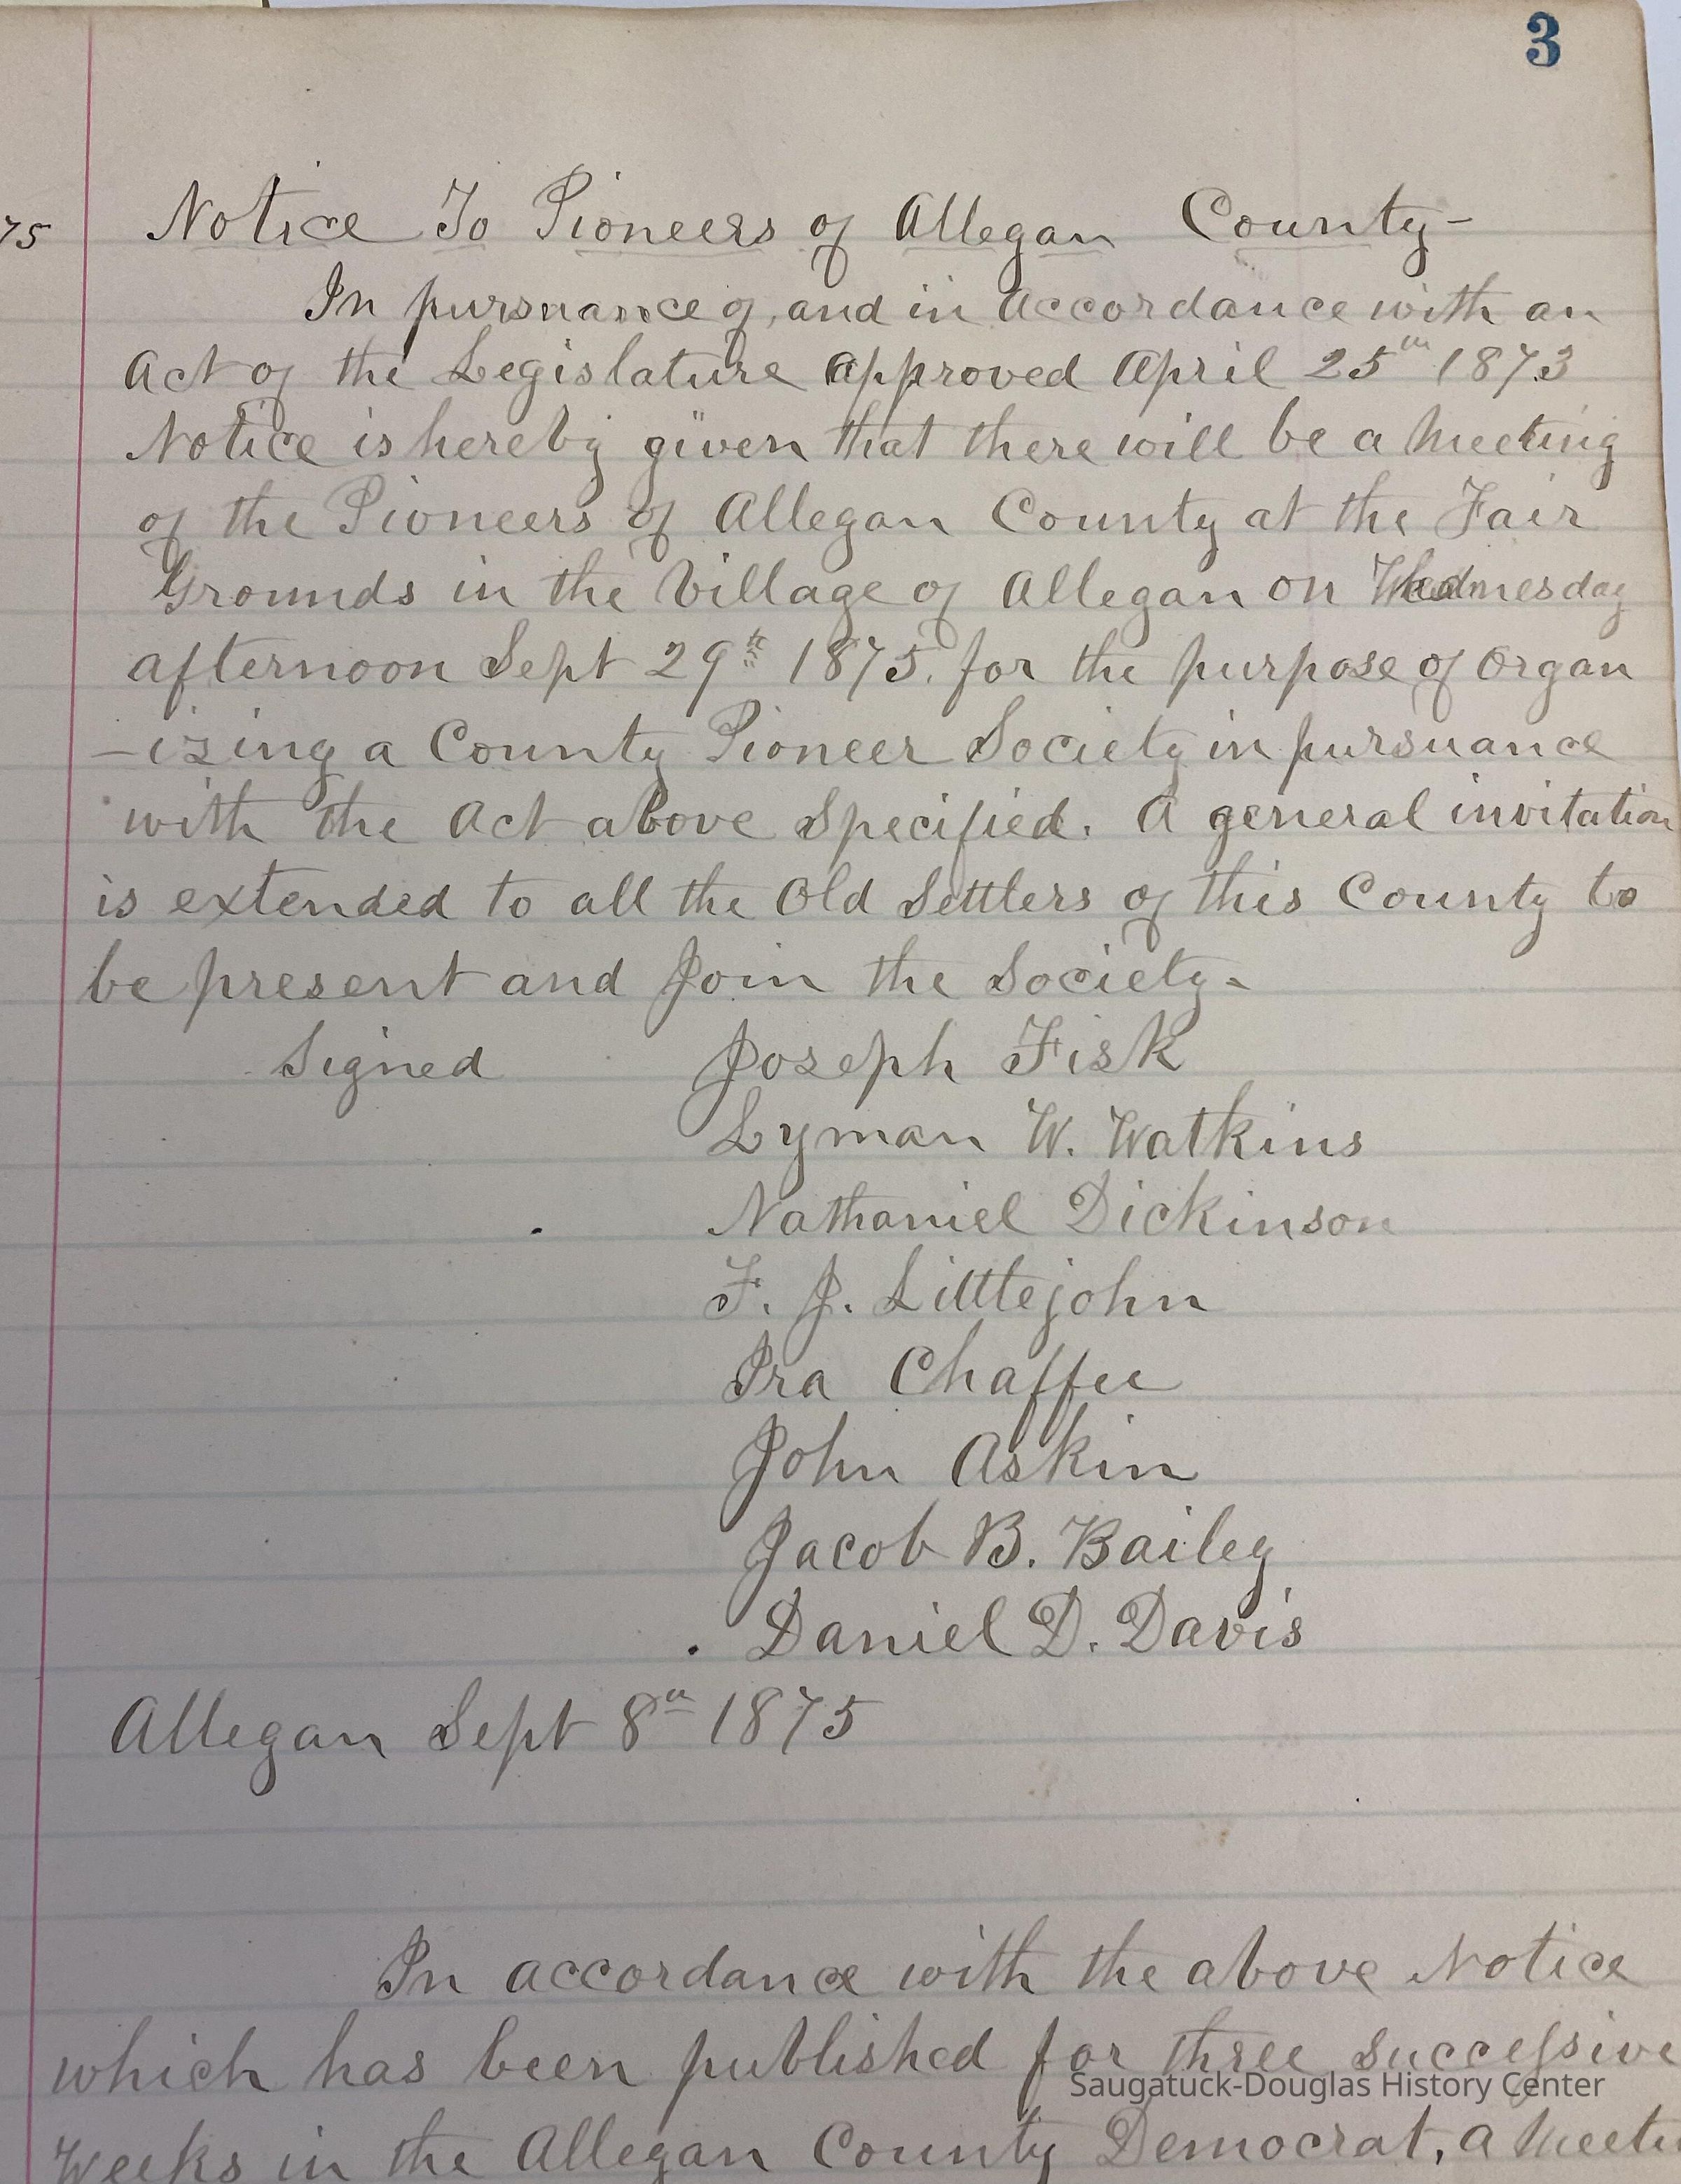 3
75 Notice To Pioneers of Allegan County-
In pursuance of, and in accordance with an
Act of the Legislature approved April 25th 1873
Notice is hereby given that there will be a Meeting
of the Pioneers of Allegan County at the Fair
Grounds in the Village of Allegan on Wednesday
afternoon Sept 29th 1875. for the purpose of Organ
-izing a County Pioneer Society in pursuance
with the Act above Specified. A general invitation
is extended to all the Old Settlers of this County to
be present and Join the Society-
Signed Joseph Fisk
Lyman W. Watkins
Nathaniel Dickinson
F. J. Littlejohn
Ira Chaffee
John Askin
Jacob B. Bailey
Daniel D. Davis
Allegan Sept 8th 1875
In accordance with the above Notice
which has been published for three successive
Saugatuck-Douglas History Center
Weeks in the Allegan County Democrat, a